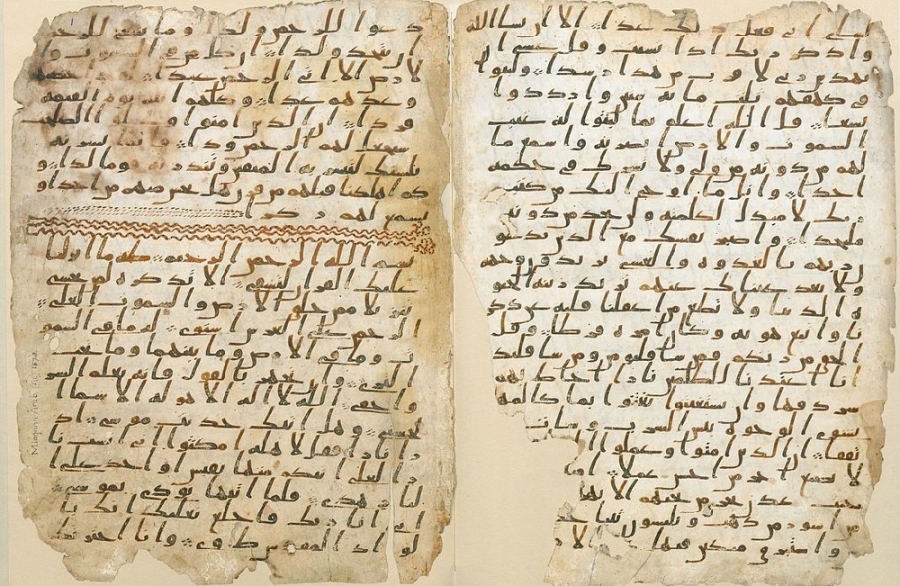 انى فعل ذلك غدا الا ان يشا الله
واذكر ربك اذا نسيت وقل عسى ا
يهدين ربى لا قرب من هذا رشدا ولبثوا
فى كهفهم ثلث مائة سنين وازدادوا
تسعا قل الله اعلم بما لبثوا له غيب
السموت والارض ابصر به واسمع ما
لهم من دونه من ولى ولا يشرك فى حكمه
احدا واتل ما اوحى اليك من كتب
ربك لا مبدل لكلمته ولن تجد من دونه
ملتحدا واصبر نفسك مع الذين يدعو
ن ربهم بالغدوه والعشى يريدون وجهه
ولا تعد عيناك عنهم تريد زينة الحيو
ه الدنيا ولا تطع من اغفلنا قلبه عن ذكر
نا واتبع هويه وكان امره فرطا وقل
الحق من ربكم فمن شا فليومن ومن شا فليكفر
انا اعتدنا للظلمين نارا احاط بهم
سردقها وان يستغيثوا يغثوا بما كالمهل
يشوى الوجوه بئس الشرب وسات
مرتفقا ان الذين امنوا وعملوا ا
لا نضيع اجر من احسن عملا او
جنت عدن تجرى من تحتهم الانهر
من اسور من ذهب ويلبسون ثيابا
واستبرق متكين فيها الار
دعوا للرحمن ولدا وما ينبغى للرحمن
ان يتخذ ولدا ان كل من فى السموت وا
لارض الا اتى الرحمن عبدا لقد احصيهم
وعدهم عدا وكلهم اتيه يوم القيمه
فردا ان الذين امنوا وعملوا الصلحت
سيجعل لهم الرحمن ودا فانما يسرنه
بلسنك لتبشر به المتقين وتنذر به قوما لدا و
كم اهلكنا قبلهم من قرن هل تحس منهم من احد او
تسمع لهم ركزا
بسم الله الرحمن الرحيم طه ما انزلنا
عليك القران لتشقى الا تذكره لمن يخشى
تنزيلا ممن خلق الارض والسموت العلى
الرحمن على العرش استوى له ما فى السمو
ت وما فى الارض وما بينهما وما تحت
الثرى وان تجهر بالقول فانه يعلم السر
واخفى الله لا اله الا هو له الاسما ا
لحسنى وهل اتيك حديث موسى اذ
را نارا فقل لاهله امكثوا انى انست نا
را لعلى اتيكم منها بقبس او اجد على ا
لنار هدى فلما اتيها نودى يموسى
انى انا ربك فاخلع نعليك انك با
لواد المقدس طوى وانا اخترتك
Mingana Arab. 1572